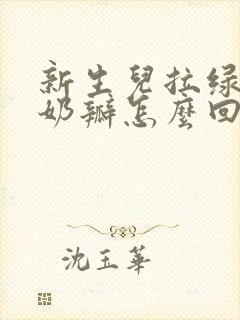 新生兒拉綠
奶瓣怎麼回
沈玉華